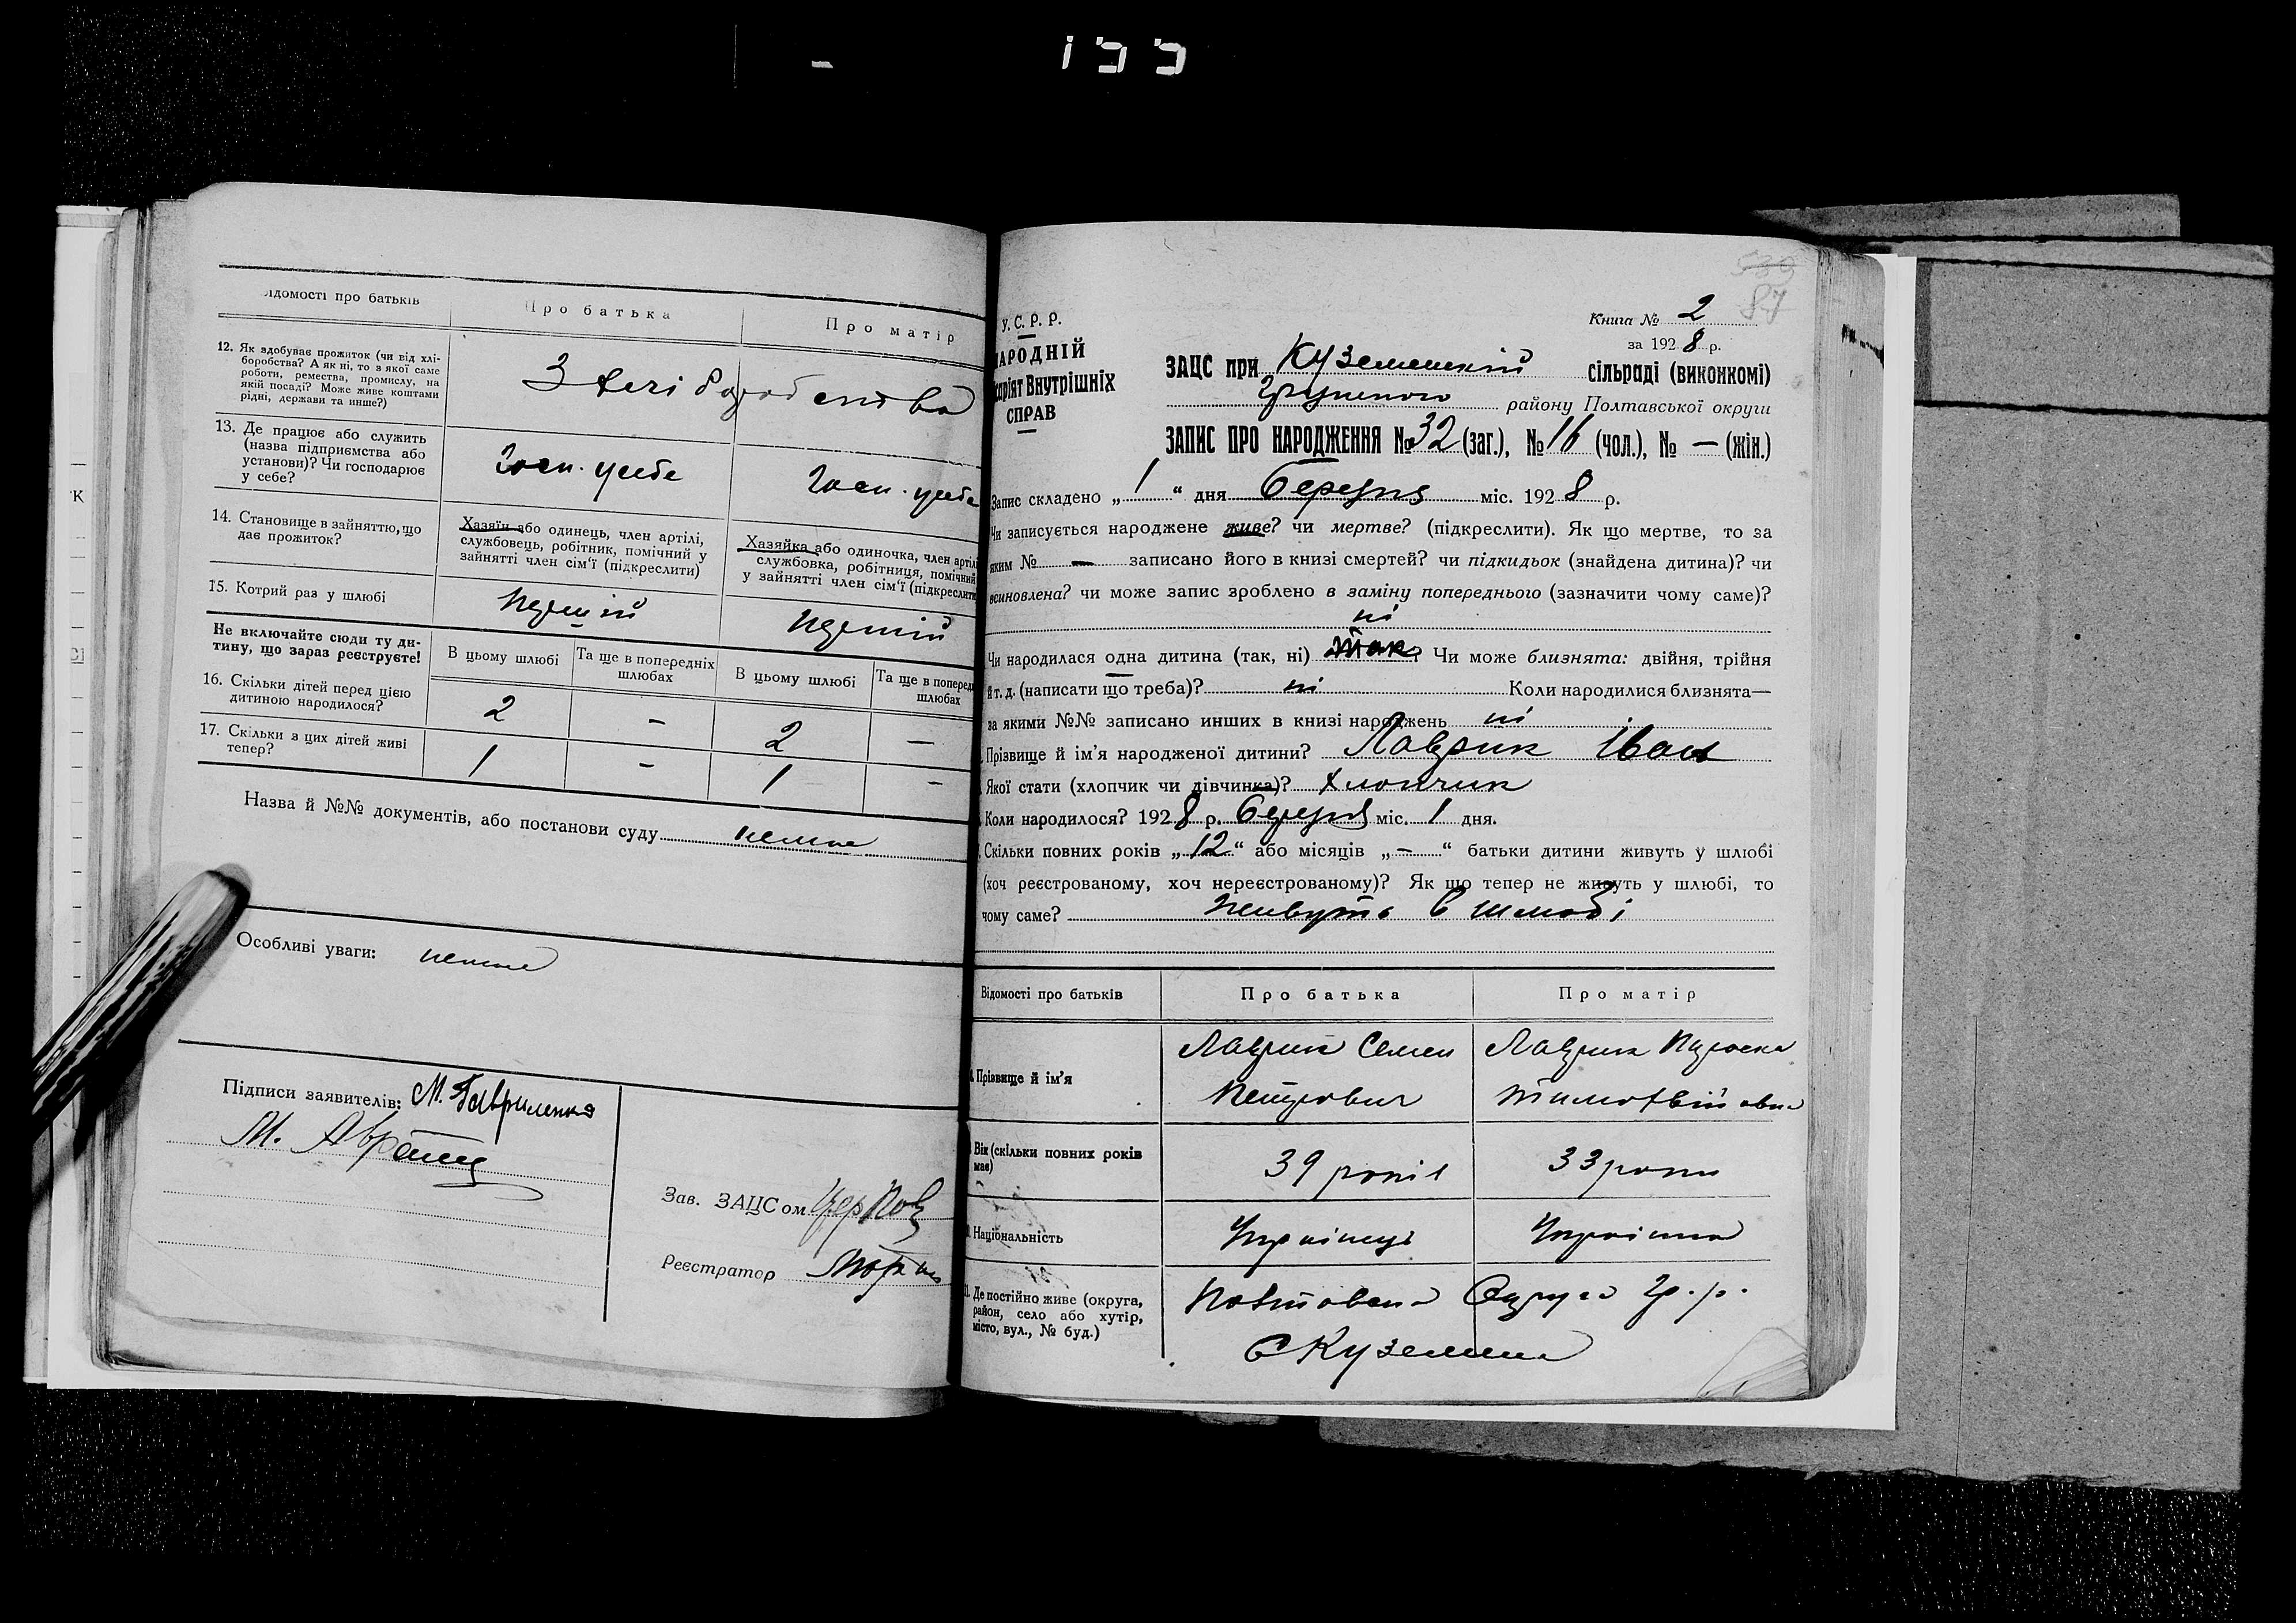 155
ідомості про батьків
Про батька
Про матір
12. Як здобуває прожиток (чи від хлі-
боробства? А як ні, то з якої саме
роботи, ремества, промислу, на
якій посаді? Може живе коштами
рідні, держави та инше?)
З хлібороб ства
13. Де працює або служить
(назва підприємства або
установи)? Чи господарює
у себе?
Госп. у себе
Госп. у себе
14. Становище в зайняттю, що
дає прожиток?
Хазяїн або одинець, член артілі,
службовець, робітник, помічний у
зайнятті член сім'ї (підкреслити)
Хазяйка або одиночка, член артілі
службовка, робітниця, помічний
у зайнятті член сім'ї (підкреслити
15. Котрий раз у шлюбі
перший
перший
Не включайте сюди ту ди-
тину, що зараз реєструєте!
В цьому шлюбі
Та ще в попередніх
шлюбах
В цьому шлюбі
Та ще в поперед
шлюбах
16. Скільки дітей перед цією
дитиною народилося?
2 – 2 —
17. Скільки з цих дітей живі
тепер?
1 – 1 –
Назва й №№ документів, або постанови суду немає
Особливі уваги: немає
Підписи заявителів: М. Гавриленко
М.
Зав. ЗАЦСом
Реєстратор
539
87
Книга № 2
за 1928 р.
У. С. Р. Р.
НАРОДНІЙ
Внутрішніх
СПРАВ
ЗАЦС при Куземенській сільраді (виконкомі)
Грунського району Полтавської округи
ЗАПИС ПРО НАРОДЖЕННЯ № 32 (заг.), № 16 (чол.), № — (жін.)
Запис складено „ 1 “ дня березня міс. 1928 р.
Чи записується народжене живе? чи мертве? (підкреслити). Як що мертве, то за
яким № — записано його в книзі смертей? чи підкидьок (знайдена дитина)? чи
всиновлена? чи може запис зроблено в заміну попереднього (зазначити чому саме)?
ні
Чи народилася одна дитина (так, ні) так? Чи може близнята: двійня, трійня
й т. д. (написати що треба)? ні Коли народилися близнята—
за якими №№ записано инших в книзі народжень ні
Прізвище й ім'я народженої дитини? Лаврик Іван
Якої стати (хлопчик чи дівчинка)? хлопчик
Коли народилося? 1928 р. березня міс. 1 дня.
Скільки повних років „ 12 “ або місяців „ – “ батьки дитини живуть у шлюбі
(хоч реєстрованому, хоч нереєстрованому)? Як що тепер не живуть у шлюбі, то
чому саме? живуть в шлюбі
Відомості про батьків
Про батька
Про матір
Прізвище й ім'я
Лаврик Семен
Петрович
Лаврик
Вік (скільки повних років
має)
39 років
33 роки
Національність
Українець
Українка
11. Де постійно живе (округа,
район, село або хутір,
місто, вул., № буд.)
Полтавська Округа Гр. р.
с Куземин